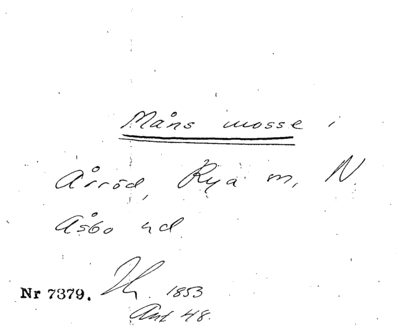 Måns mosse i
Årröd, Rya m, N
Åsbo hd
Nr 7379. 1853
Ant 48.